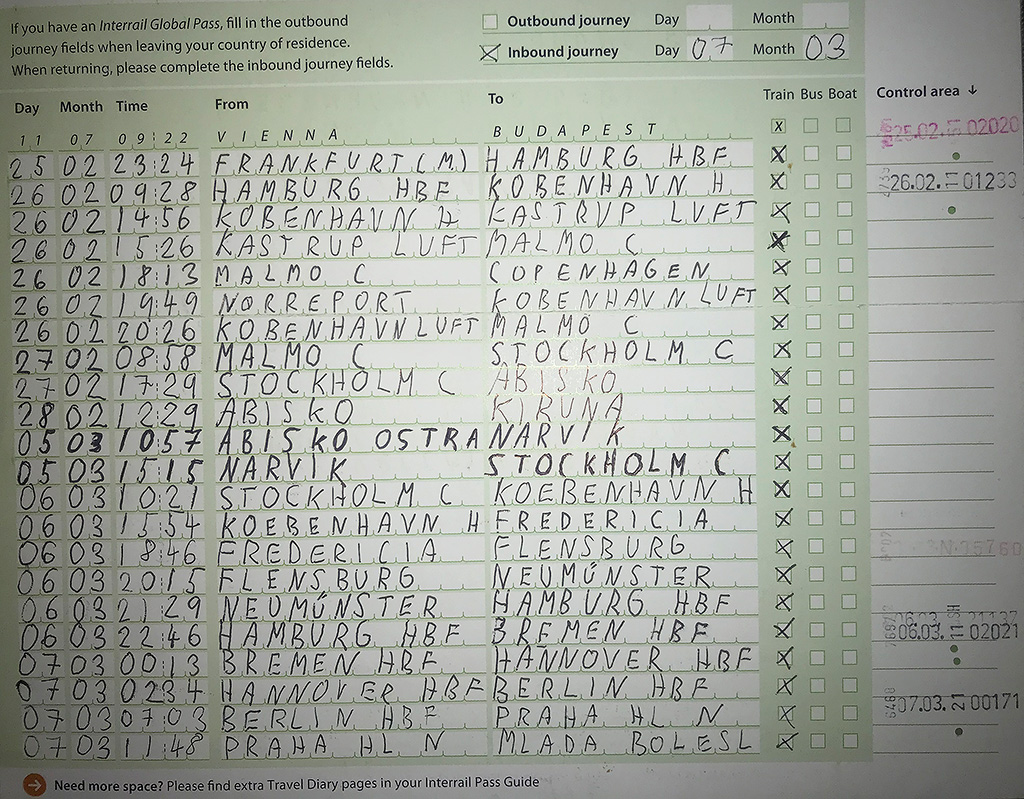 If you have an Interrail Global Pass, fill in the outbound
journey fields when leaving your country of residence.
When returning, please complete the inbound journey fields.
Outbound journey Day Month
Inbound journey Day 07 Month 03
Day Month Time From To Train Bus Boat Control area ↓
11 07 09:22 VIENNA BUDAPEST x 25.02. 02020
25 02 23:24 FRANKFURT(M) HAMBURG HBF X
26 02 09:28 HAMBURG HBF KOBENHAVN H X 26.02. 11 01233
26 02 14:56 KOBENHAVN H KASTRUP LUFT X
26 02 15:26 KASTRUP LUFT MALMO C X
26 02 18:13 MALMO C COPENHAGEN X
26 02 19:49 NORREPORT KOBENHAVN LUFT X
26 02 20:26 KOBENHAVN LUFT MALMO C X
27 02 08:58 MALMO C STOCKHOLM C X
27 02 17:29 STOCKHOLM C ABISKO X
28 02 12:29 ABISKO KIRUNA X
05 03 10:57 ABISKO OSTRA NARVIK X
05 03 15:15 NARVIK STOCKHOLM C X
06 03 10:21 STOCKHOLM C KOEBENHAVN H X
06 03 15:54 KOEBENHAVN H FREDERICIA X
06 03 18:46 FREDERICIA FLENSBURG X
06 03 20:15 FLENSBURG NEUMÚNSTER X
06 03 21:29 NEUMÚNSTER HAMBURG HBF X
06 03 22:46 HAMBURG HBF BREMEN HBF X 06.03. 11 02021
07 03 00:13 BREMEN HBF HANNOVER HBF X
07 03 02:34 HANNOVER HBF BERLIN HBF X
07 03 07:03 BERLIN HBF PRAHA HL N X 07.03. 21 00171
07 03 11:48 PRAHA HL N MLADA BOLESL X
Need more space? Please find extra Travel Diary pages in your Interrail Pass Guide